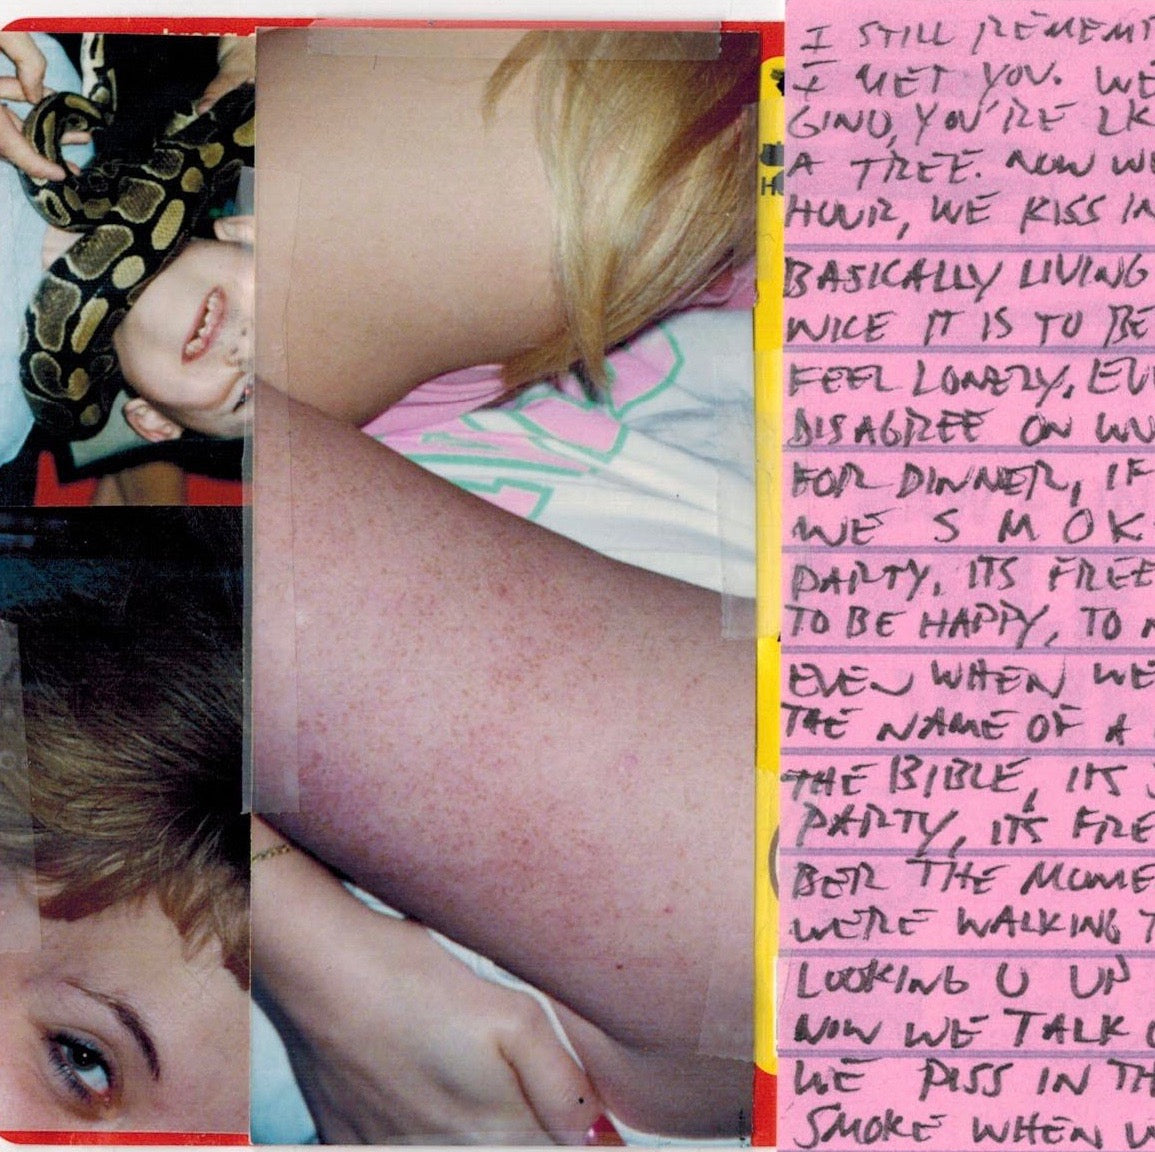 I STILL REMEM
I MET YOU. WE
GINO, YOU'RE LK
A TREE. NOW WE
HOUR, WE KISS IN
BASICALLY LIVING
NICE IT IS TO BE
FEEL LONELY, EV
DISAGREE ON WU
FOR DINNER, IF
WE SMOK
PARTY, ITS FREE
TO BE HAPPY, TO
EVEN WHEN WE
THE NAME OF A
THE BIBLE, ITS
PARTY, ITS FRE
BER THE MOME
WERE WALKING T
LOOKING U UP
NOW WE TALK
WE PISS IN TH
SMOKE WHEN W